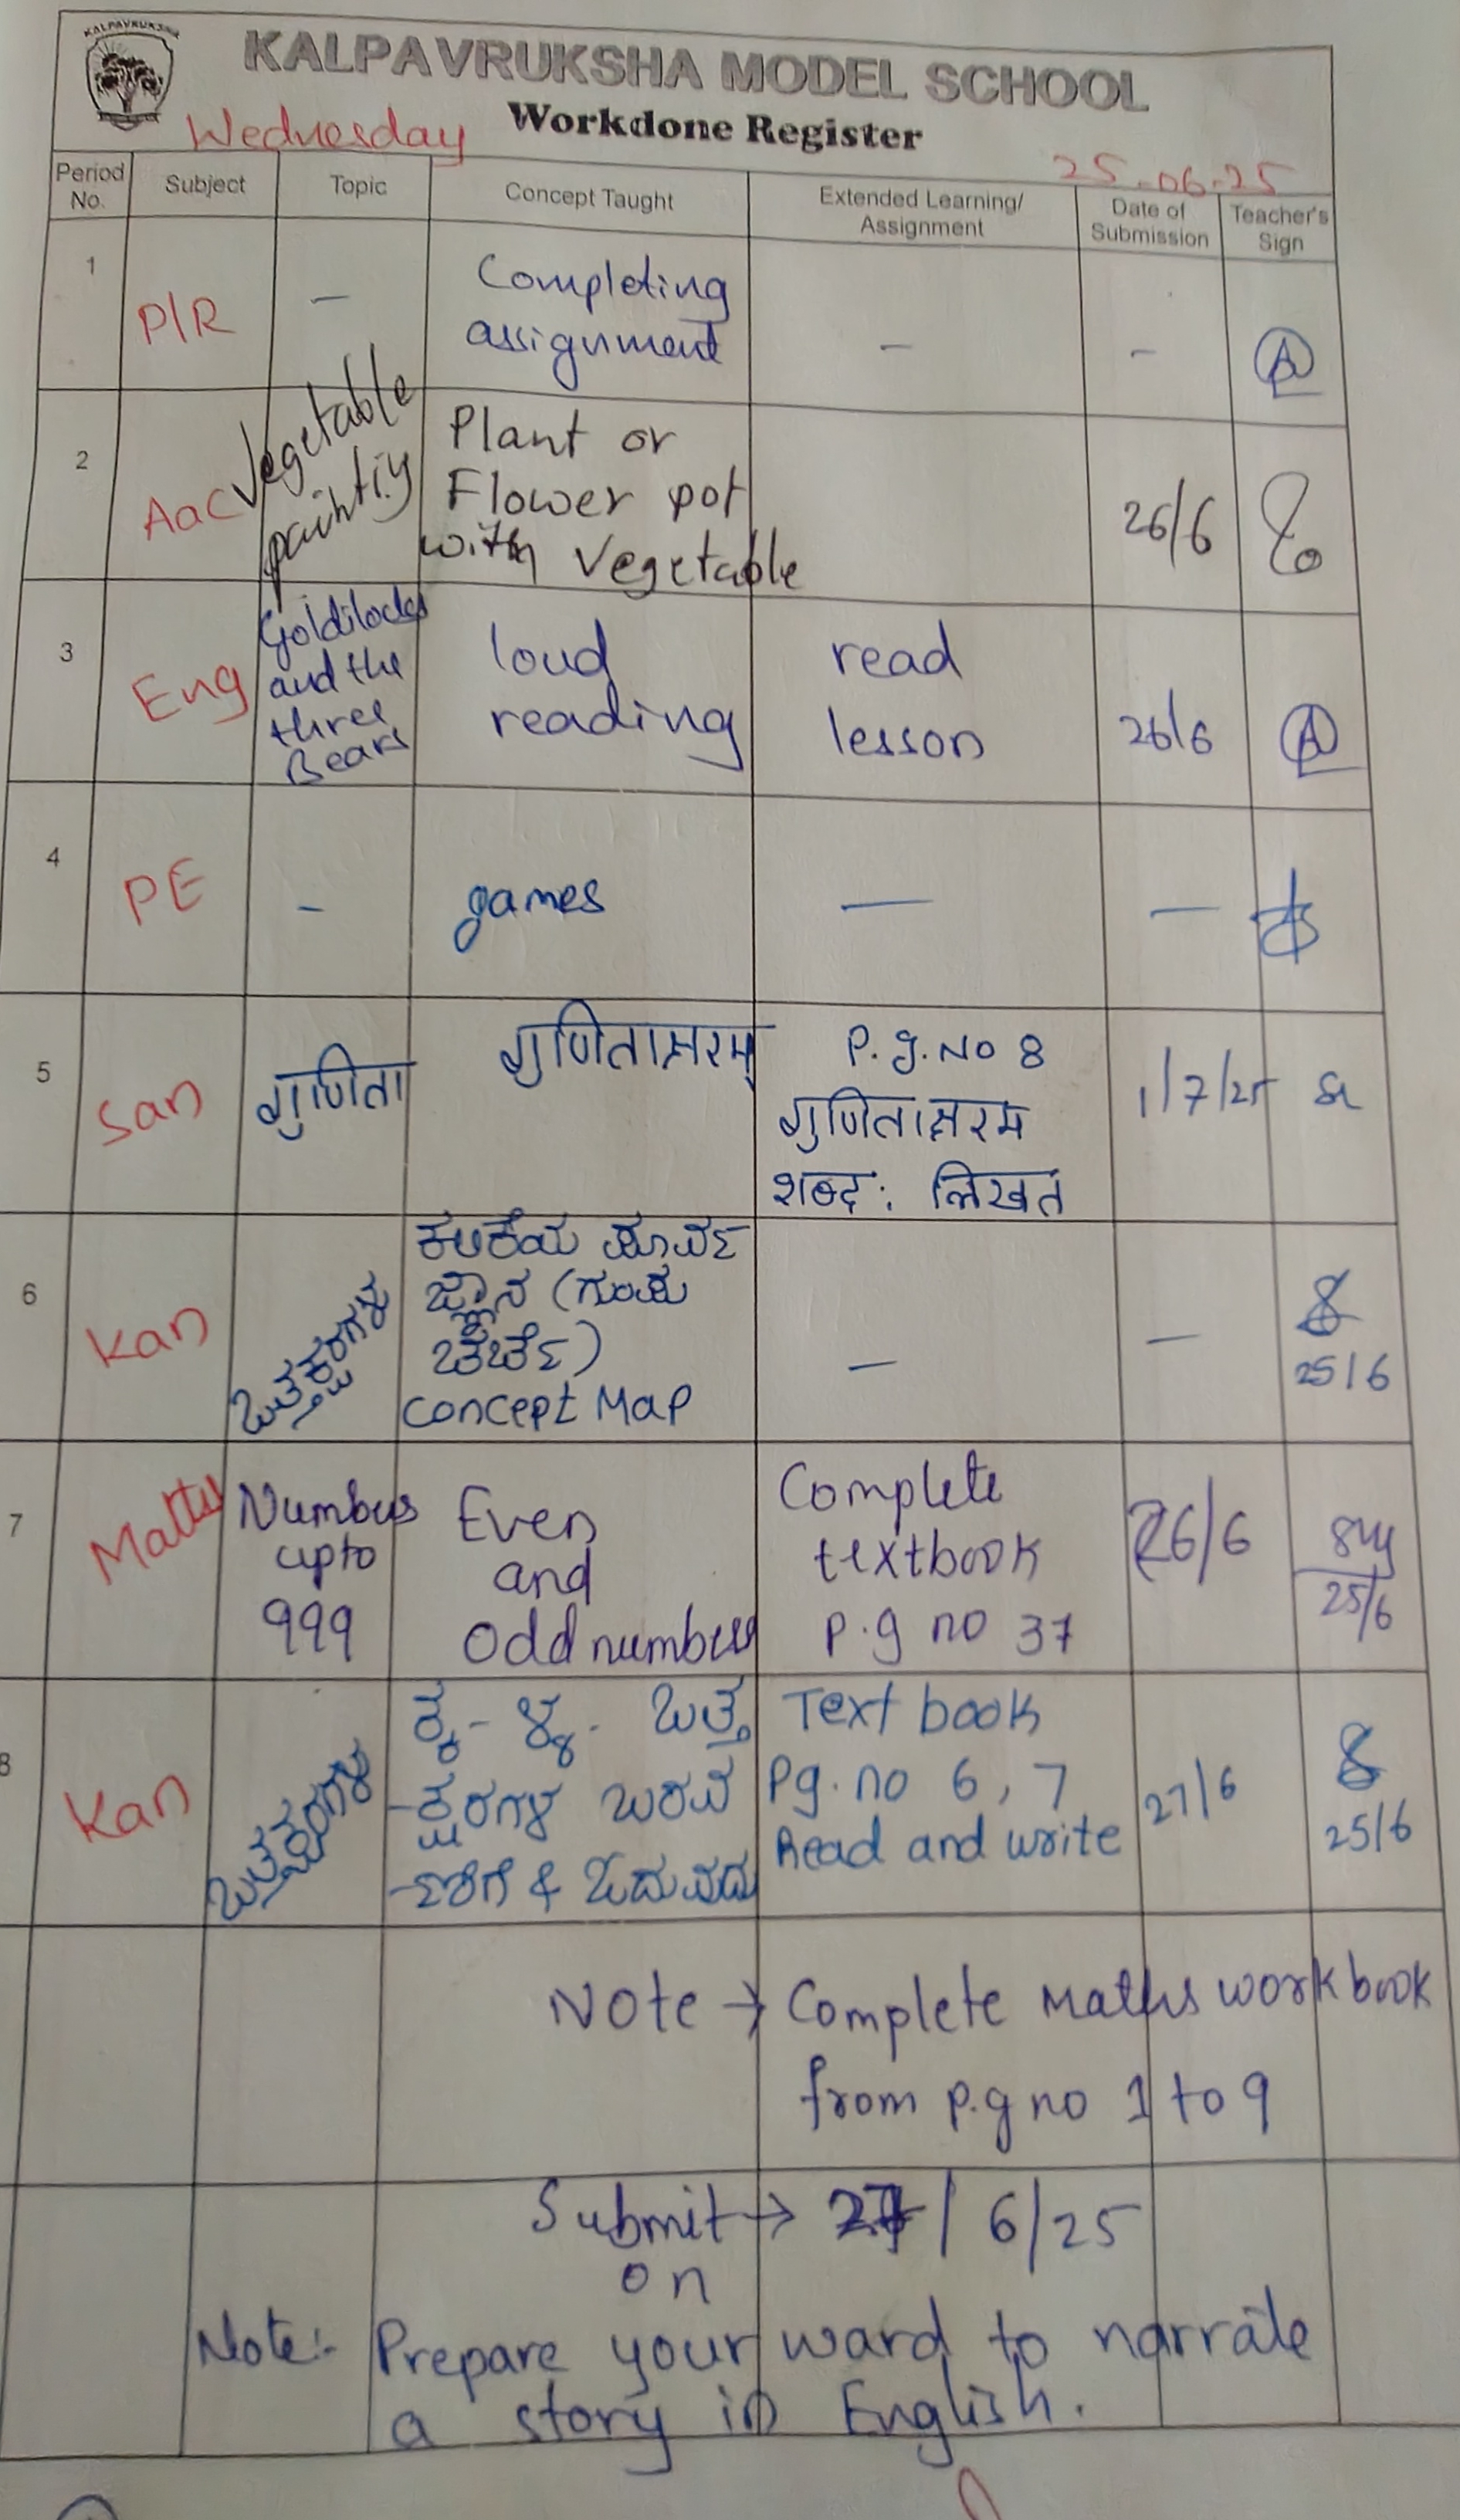 KALPAVRUKSHA
KALPAVRUKSHA MODEL SCHOOL
Workdone Register
Wednesday
25-06-25
Period No.
Subject
Topic
Concept Taught
Extended Learning/
Assignment
Date of
Submission
Teacher's
Sign
1
P/R
-
Completing
assignment
-
-
2
AaC
Vegetable
painting
Plant or
Flower pot
with vegetable
26/6
3
Eng
Goldilocks
and the
three
Bears
loud
reading
read
lesson
26/6
4
PE
-
games
-
-
5
San
गुणिता
गुणिताक्षरम्
P.g.No 8
गुणिताक्षरम
शब्द: लिखत
1/7/25
6
Kan
ಒತ್ತಕ್ಷರಗಳು
ಕಲಿಕೆಯ ಪೂರ್ವ
ಜ್ಞಾನ (ಗುಂಪು
ಚರ್ಚೆ)
concept Map
-
-
25/6
7
Maths
Numbers
upto
999
Even
and
Odd numbers
Complete
textbook
P.g no 37
26/6
25/6
8
Kan
ಒತ್ತಕ್ಷರಗಳು
ಒತ್ತ
-ಕ್ಷರಗಳ ಬರವ
-ಣಿಗೆ & ಓದುವದು
Text book
Pg.no 6, 7
Read and write
27/6
25/6
Note → Complete Maths workbook
from P.g no 1 to 9
Submit → 27/6/25
on
Note:- Prepare your ward to narrate
a story in English.